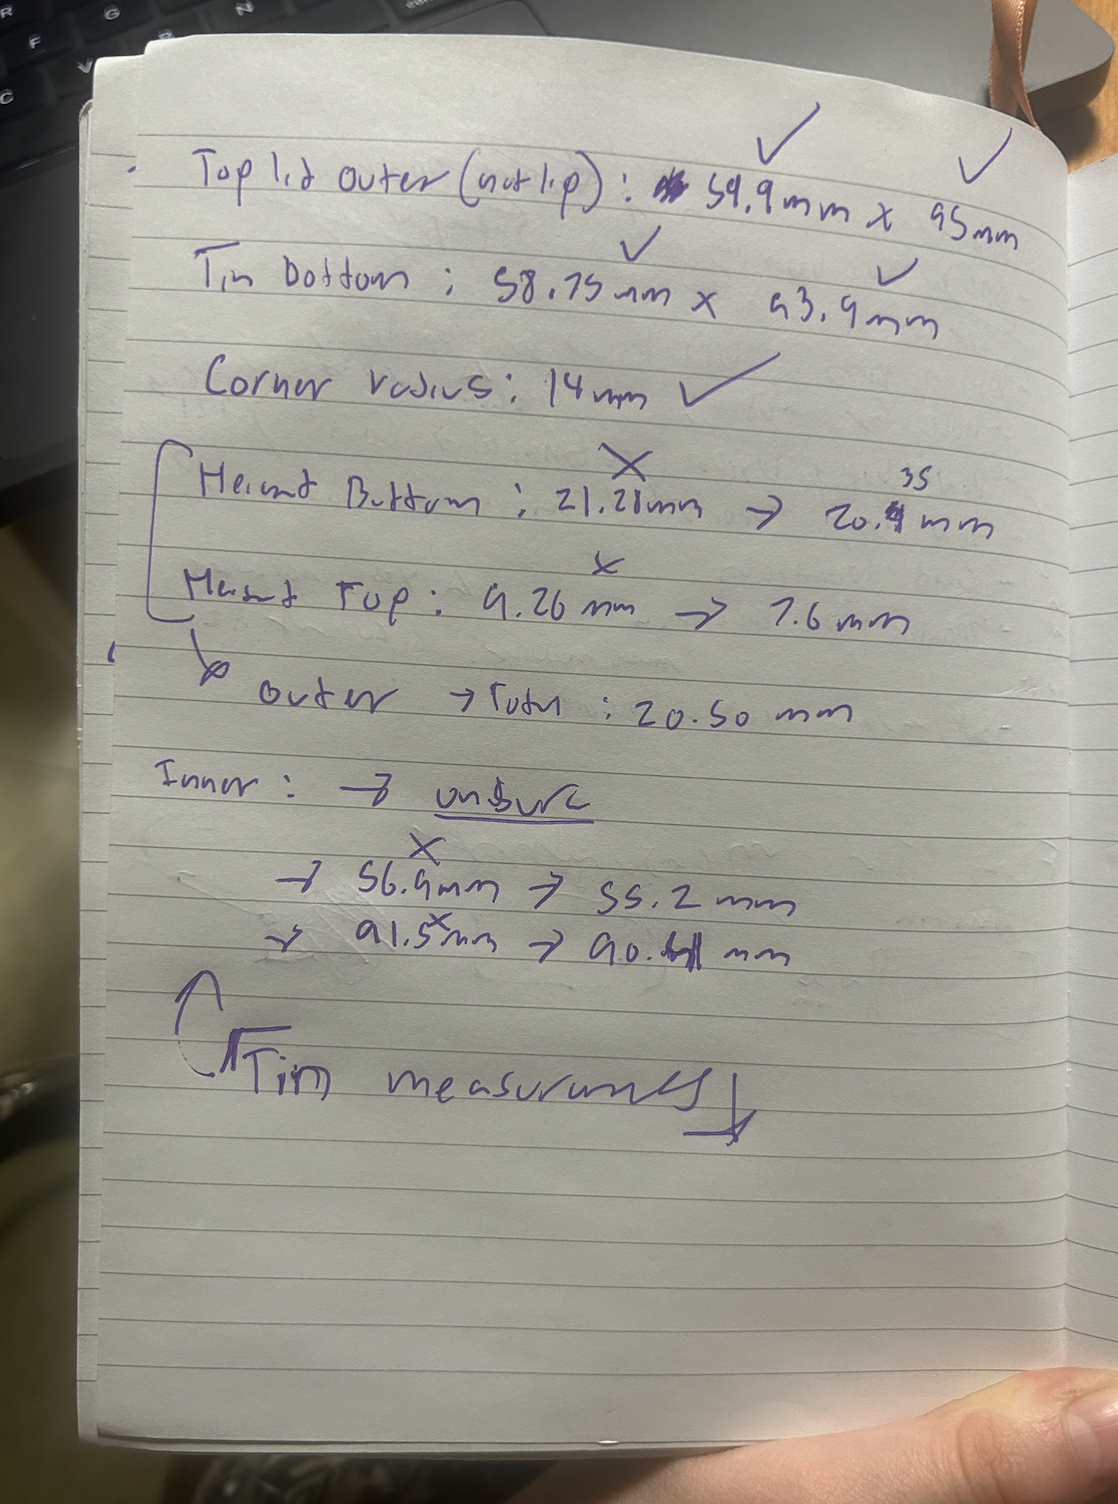 R G N
F
V
C
Top lid outer (not lip): 59.9mm x 95mm
Tin bottom: 58.75mm x 93.9mm
Corner radius: 14mm
Height Bottom: 21.21mm → 20.35 mm
Height Top: 9.26 mm → 7.6 mm
outer → Total: 20.50 mm
Inner: → unsure
→ 56.9mm → 55.2 mm
→ 91.5mm → 90. mm
Tin measurements